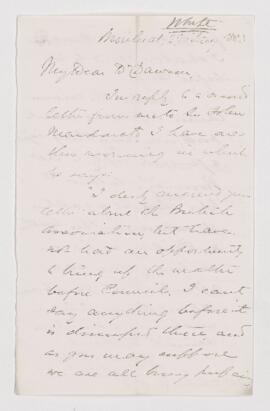 White
Montreal, 27 Nov 1883
My Dear Dr Dawson,
In reply to a second
letter from me to Sir John
Macdonald I have one
this morning in which
he says:
"I duly received your
letter about the British
Association, but have
not had an opportunity
to bring up the matter
before Council. I can't
say anything before it
is discussed there, and
as you may suppose
we are all busy